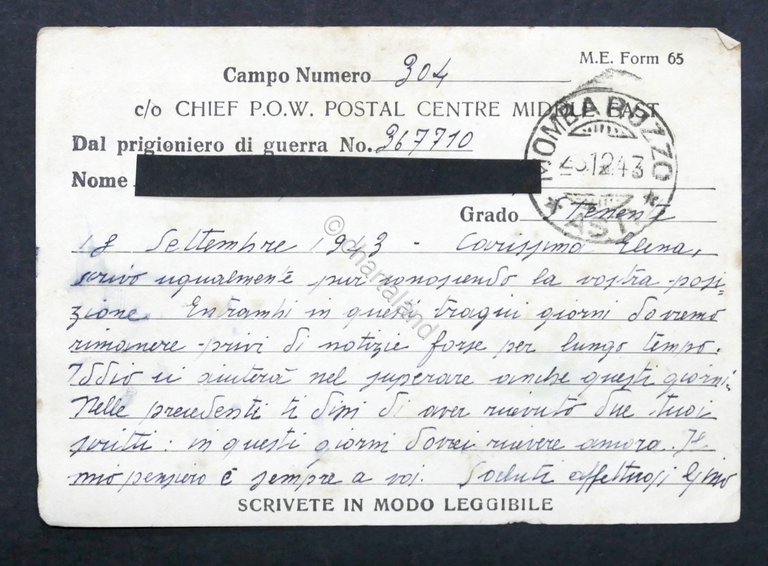 M.E. Form 65
Campo Numero 304
c/o CHIEF P.O.W. POSTAL CENTRE MIDDLE EAST
MOMBARUZZO
ASTI
12 43
Dal prigioniero di guerra No. 367710
Nome
Grado Tenente
18 Settembre 1943 - Carissima Elena,
scrivo ugualmente pur conoscendo la vostra posi-
zione. Entrambi in questi tragici giorni dovremo
rimanere privi di notizie forse per lungo tempo.
Iddio ci aiuterà nel superare anche questi giorni.
Nelle precedenti ti dissi di aver ricevuto due tuoi
scritti: in questi giorni dovrei ricevere ancora. Il
mio pensiero è sempre a voi. Saluti affettuosi Gino
SCRIVETE IN MODO LEGGIBILE
© chartaland